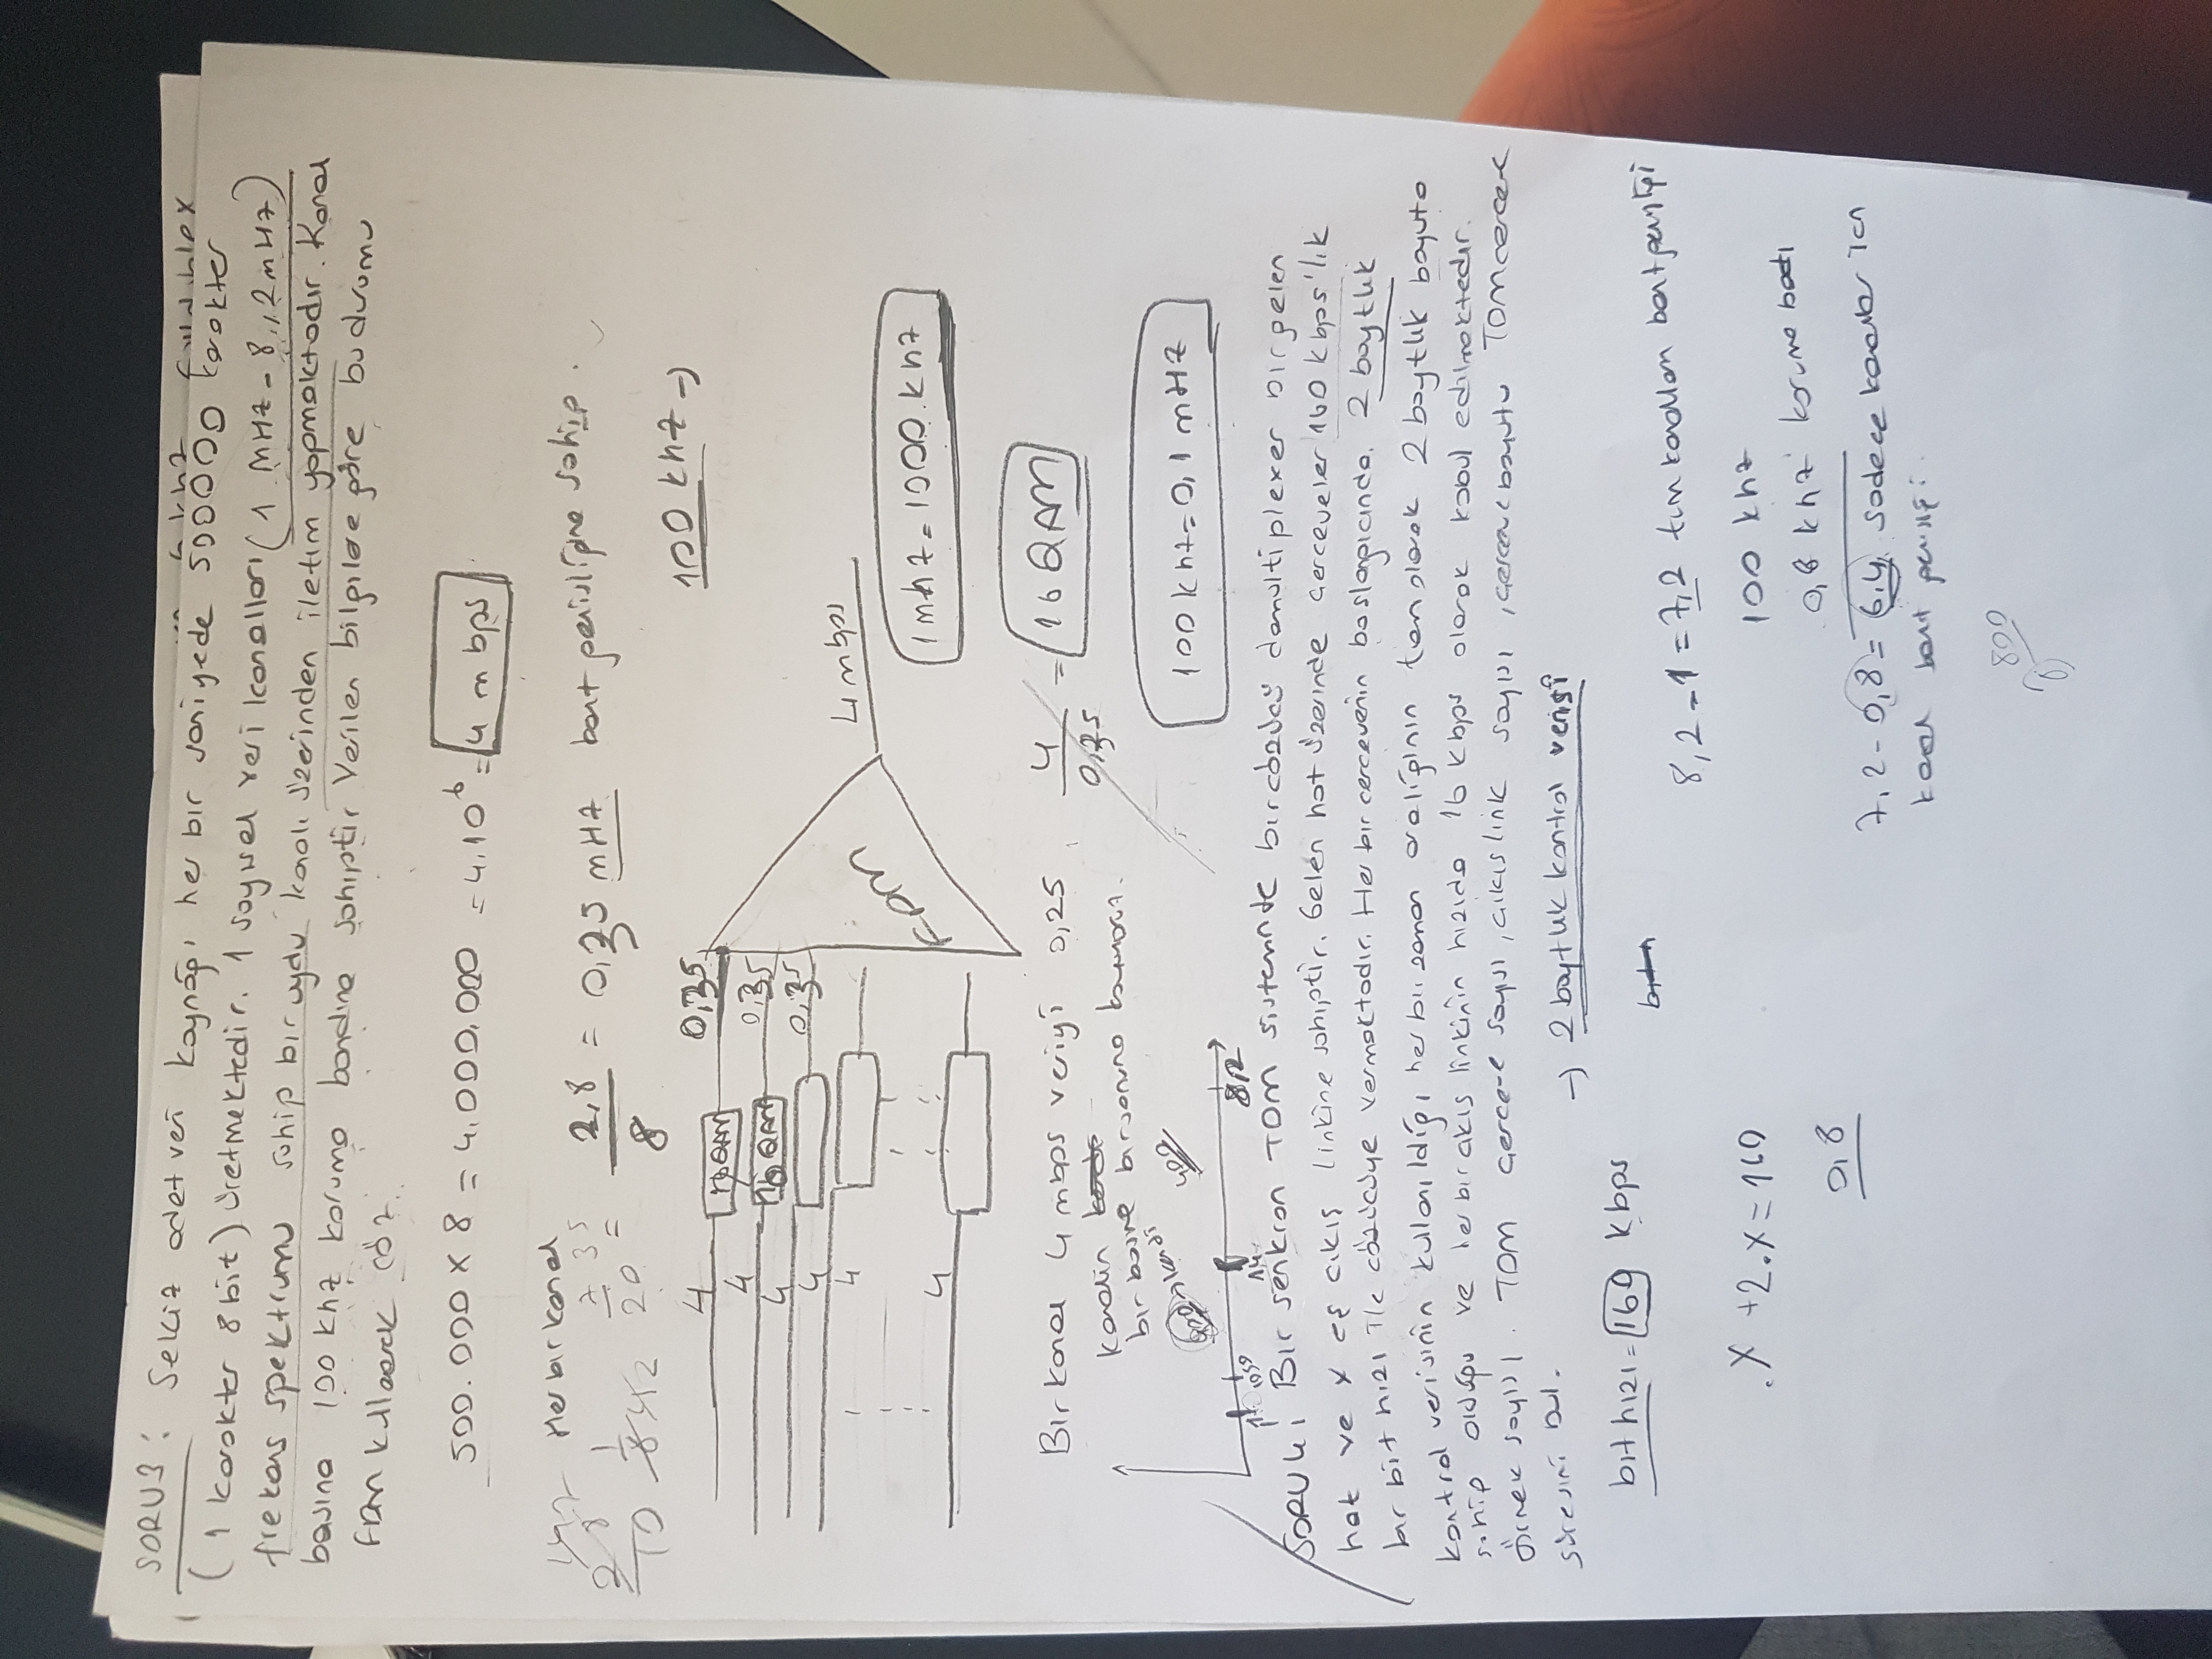 SORU3: Sekiz adet veri kaynağı her bir saniyede 500000 karakter
(1 karakter 8 bit) üretmektedir. 1 sayısal veri kanalları (1 MHZ - 8,2 mHz)
frekans spektrumu sahip bir uydu kanalı üzerinden iletim yapmaktadır. Kanal
başına 100 khz koruma bandına sahiptir Verilen bilgilere göre bu durumu
FDM kullanarak çöz.
500.000 x 8 = 4.000.000 = 4.10^6 = 4 mbps
Her bir kanal
7/20 = 2,8/8 = 0,35 mHz bant genişliğine sahip.
100 khz →
4 16QAM 0,35
4 16QAM 0,35
4 0,35
4
4
4
FDM
4 mbps
1 mhz = 1000 khz
Bir kanal 4 mbps veriyi 0,25
4/0,35 = 16 QAM
kanalın
bir başına bir sonuna koyuyoruz.
400
100 khz = 0,1 mHz
1 1050 1,4 8,2
SORU 4: Bir senkron TDM sisteminde bir çözücü demultiplexer bir gelen
hat ve x eş çıkış linkine sahiptir. Gelen hat üzerinde çerçeveler 160 kbps'lık
bir bit hızı ile çözücüye vermektadır. Her bir çerçevenin başlangıcında. 2 baytlık
kontrol verisinin kullanıldığı, her bir zaman aralığının tam olarak 2 baytlık boyuta
sahip olduğu ve her bir çıkış linkinin hızıda 16 kbps olarak kabul edilmektedir.
örnek sayısı. TDM çerçeve sayısı, çıkış link sayısı, çerçeve boyutu TDM çerçeve
süresini bul.
→ 2 baytlık kontrol verisi
bit hızı = 160 kbps
8,2 - 1 = 7,2 tüm kanalların bant genişliği
.x + 2.x = 160
100 khz
0,8
0,8 khz koruma bandı
7,2 - 0,8 = 6,4 sadece kanallar için
kanal bant genişliği.
800